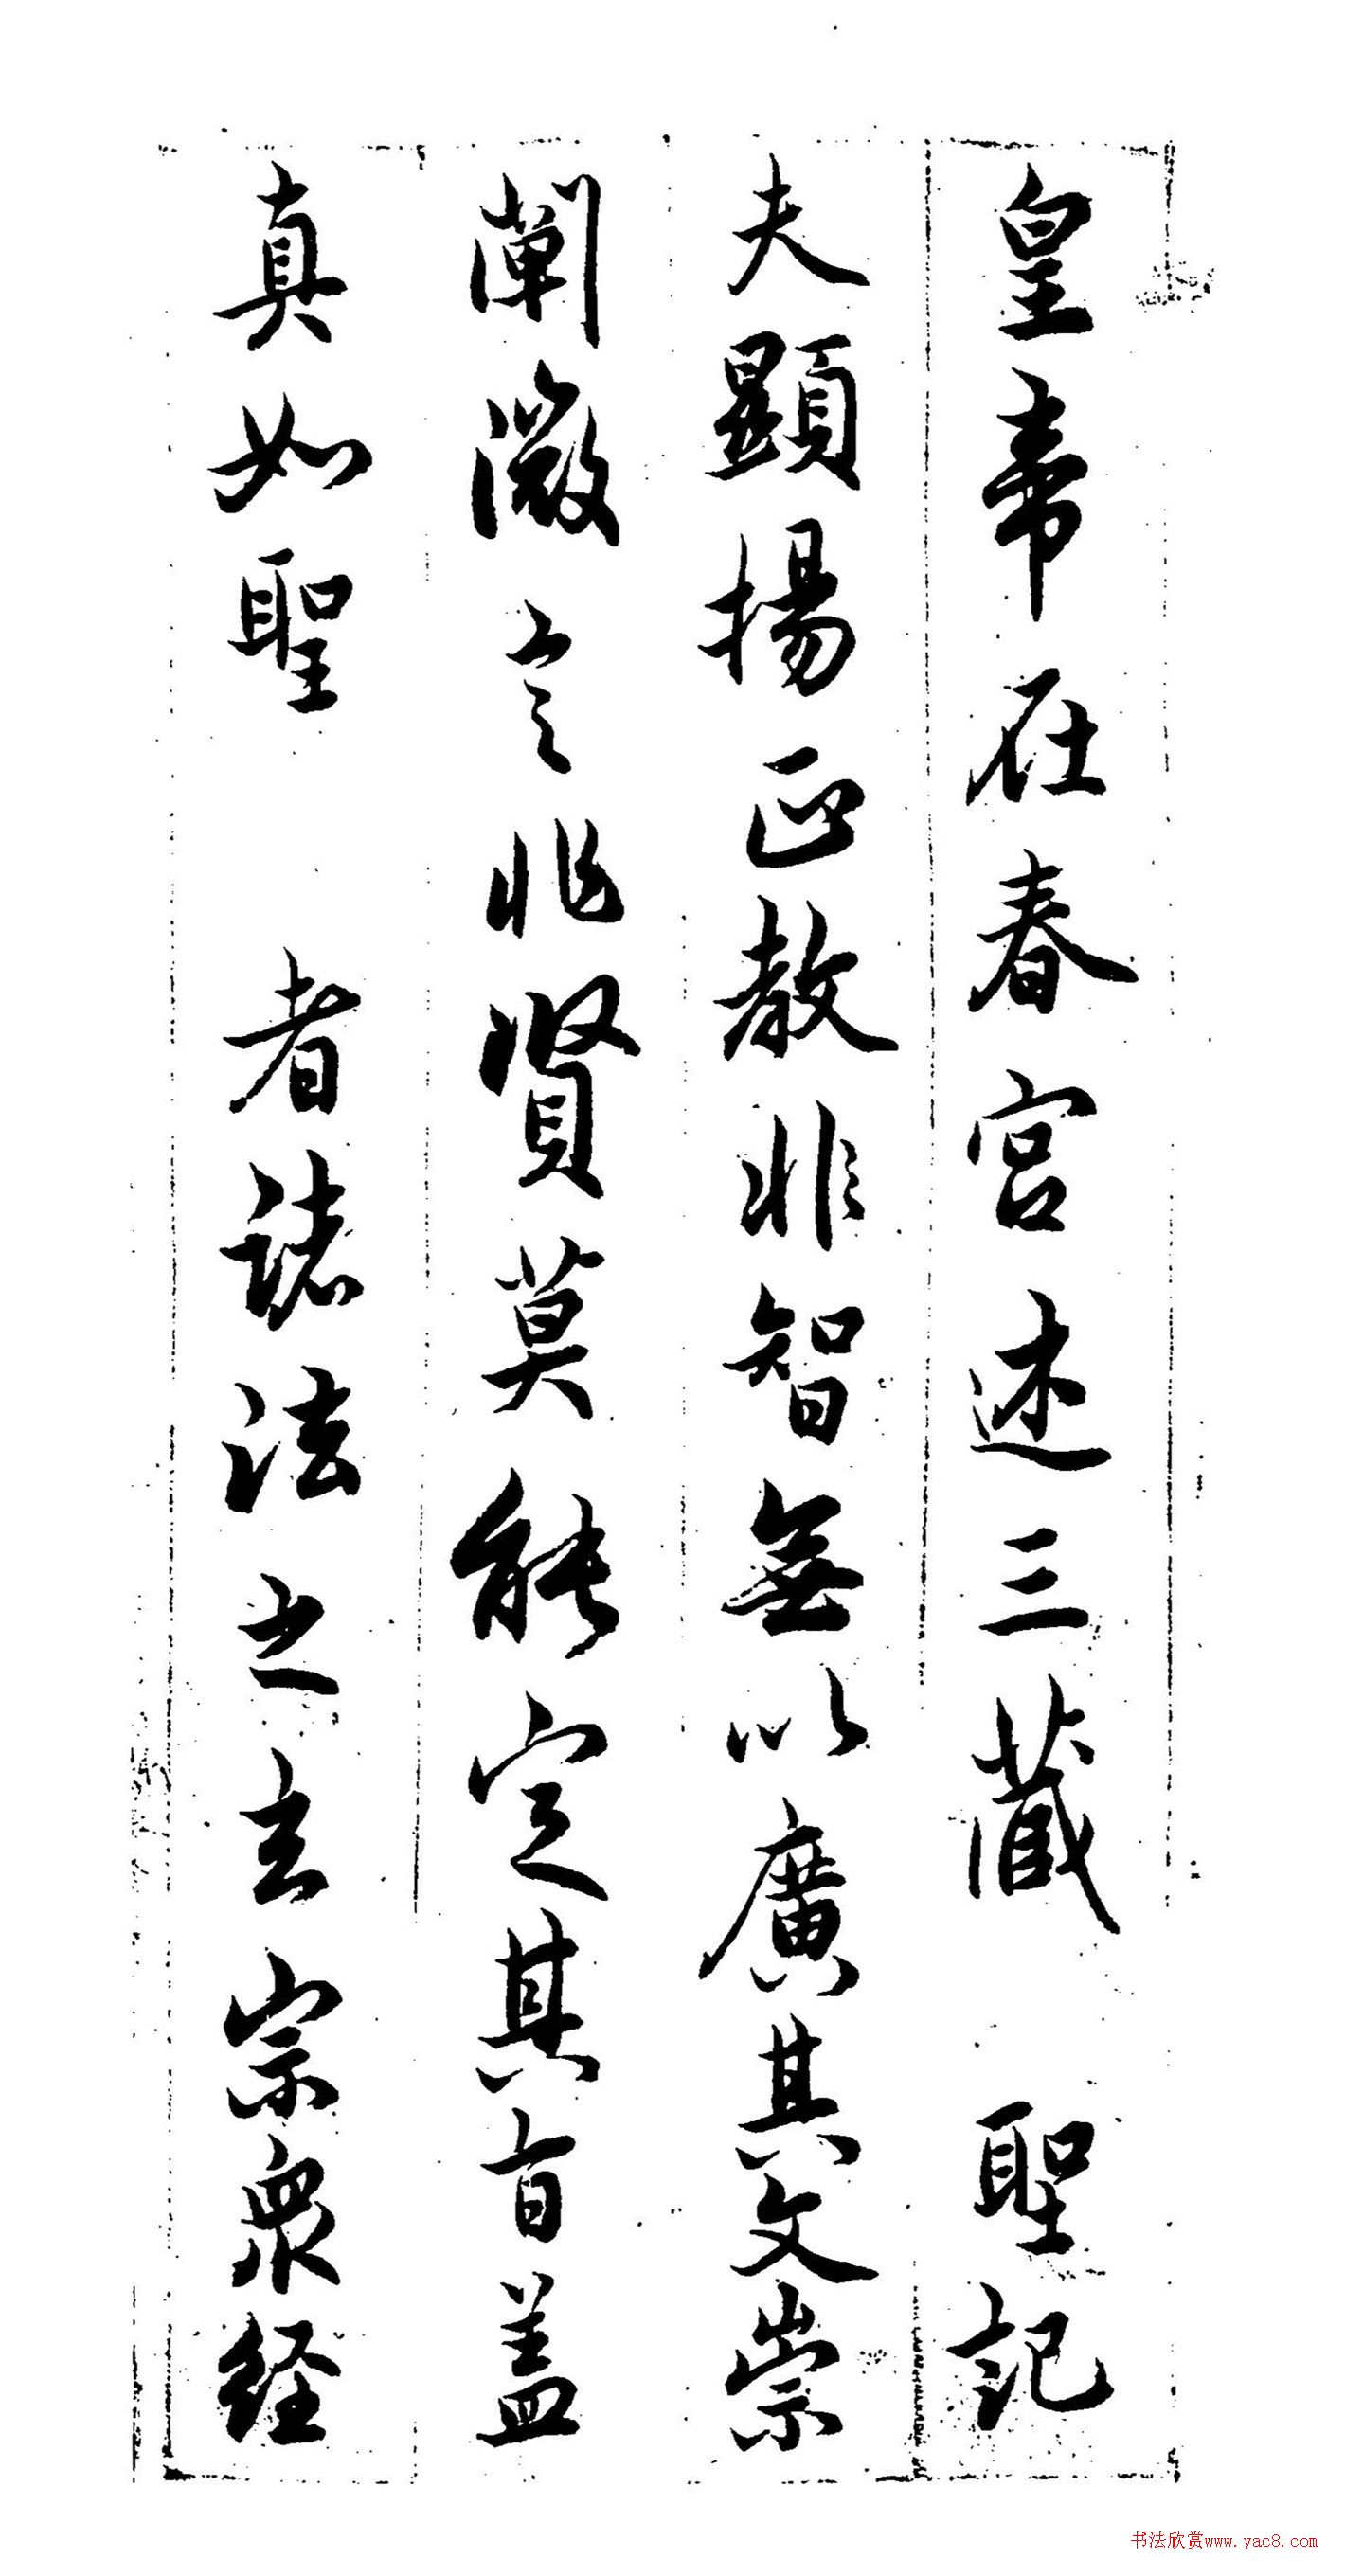 皇帝在春宮述三藏 聖記
夫顯揚正教非智無以廣其文崇
闡微言非賢莫能定其旨蓋
真如聖 者諸法之玄宗衆経
书法欣赏www.yac8.com